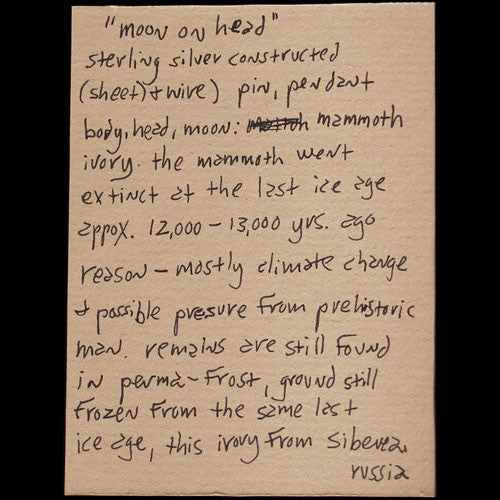 "moon on head"
sterling silver constructed
(sheet)+wire) pin, pendant
body, head, moon: mammoth
ivory. the mammoth went
extinct at the last ice age
appox. 12,000 - 13,000 yrs. ago
reason - mostly climate change
+ possible presure from prehistoric
man. remains are still found
in perma-frost, ground still
frozen from the same last
ice age, this ivory from Siberea,
russia